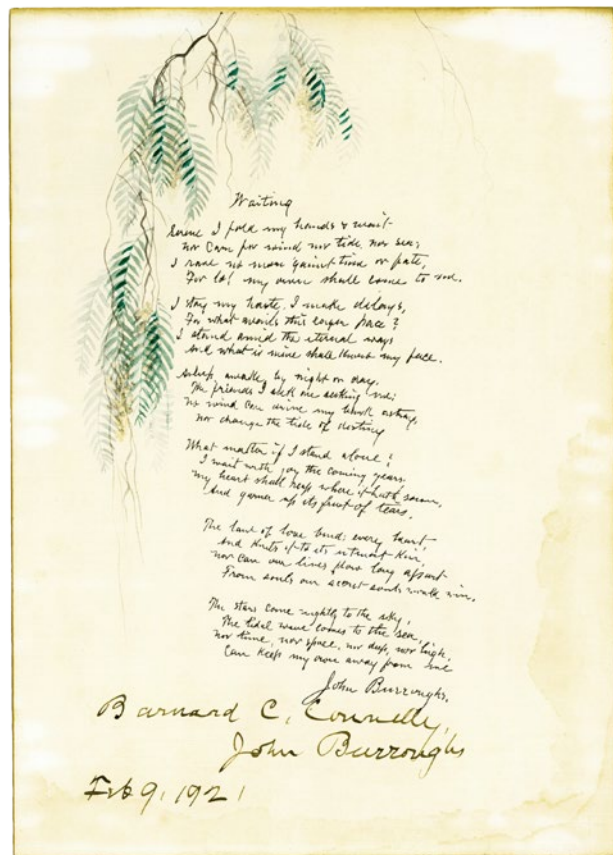 Waiting
Serene I fold my hands & wait
nor Care for wind nor tide, nor sea;
I rave no more 'gainst time or fate,
For lo! my own shall come to me.
I stay my haste, I make delays,
For what avails this eager pace?
I stand amid the eternal ways
And what is mine shall know my face.
Asleep, awake, by night or day,
The friends I seek are seeking me;
No wind can drive my bark astray,
nor change the tide of destiny
What matter if I stand alone?
I wait with joy the coming years.
My heart shall reap where it hath sown,
And garner up its fruit of tears.
The law of love binds every heart,
And knits it to its utmost kin,
nor can our lives flow long apart
From souls our secret souls would win.
The stars come nightly to the sky,
The tidal wave comes to the sea,
nor time, nor space, nor deep, nor high,
Can keep my own away from me
John Burroughs.
Barnard C. Connelly,
John Burroughs
Feb 9, 1921